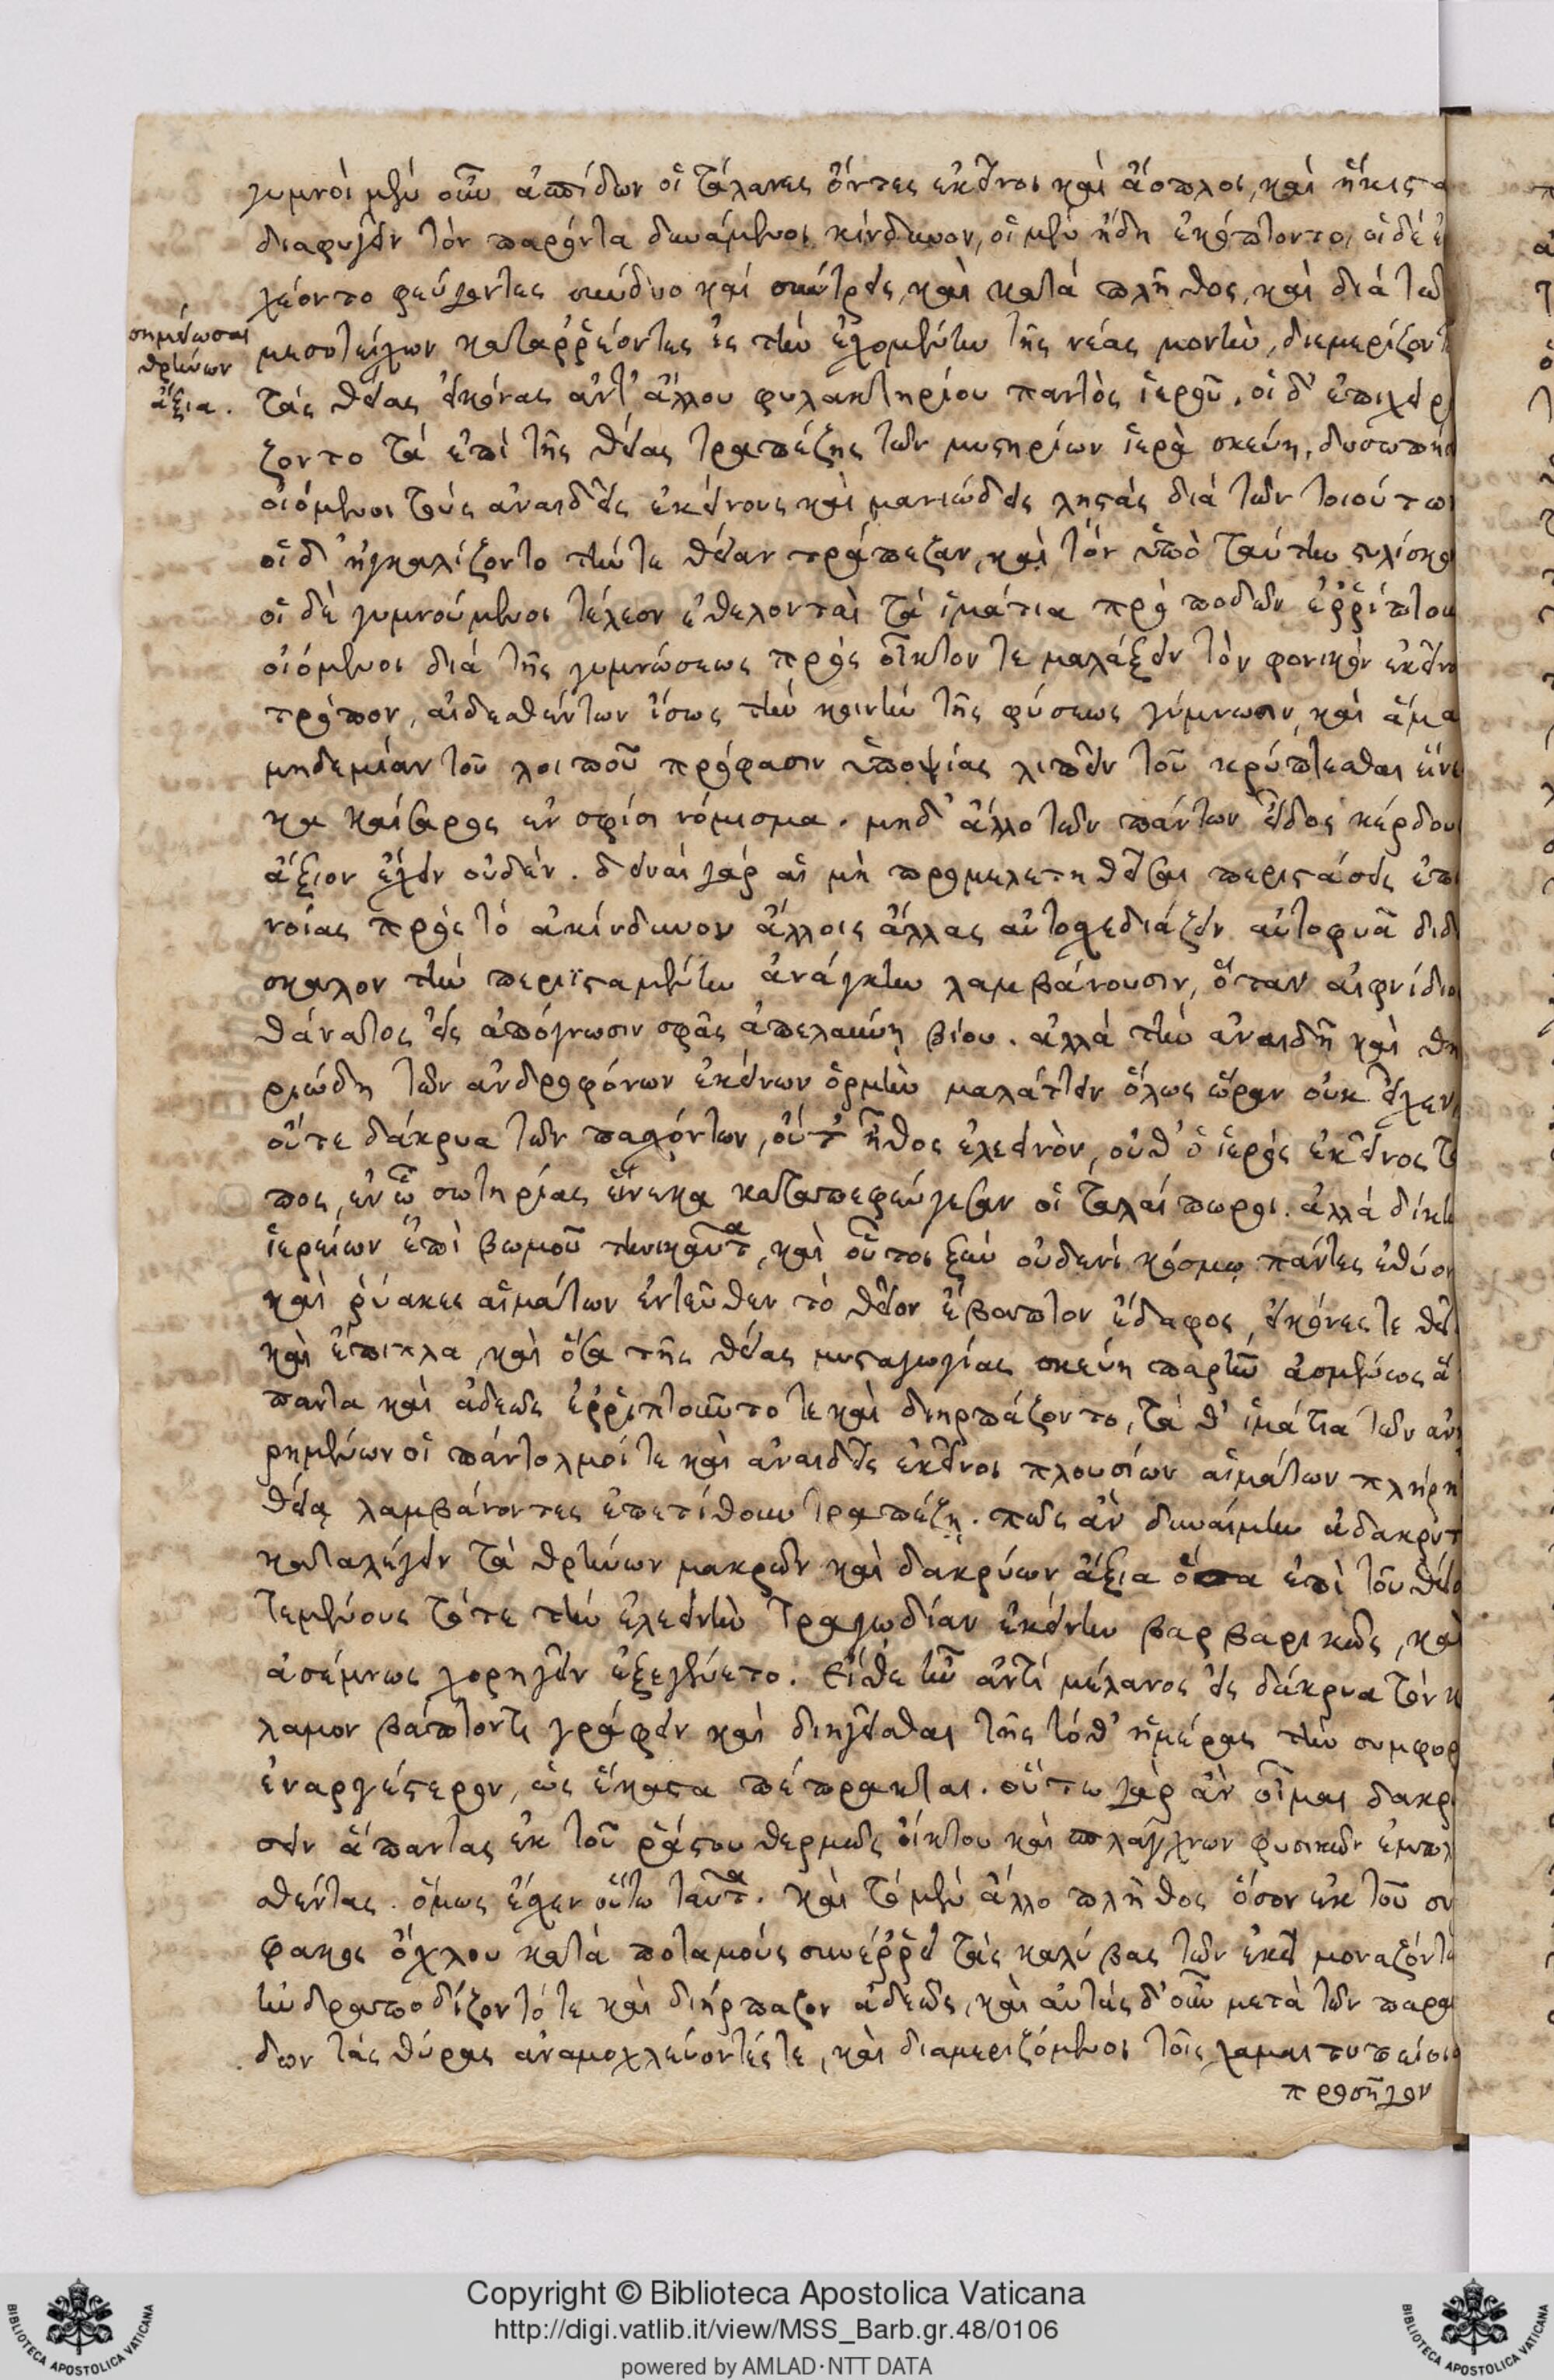 γυμνοὶ μὲν οὖν ἀσπίδων οἱ τάλανες ὄντες ἐκεῖνοι καὶ ἄοπλοι, καὶ ἥκιστα
διαφυγεῖν τὸν παρόντα δυνάμενοι κίνδυνον, οἱ μὲν ἤδη ἐκόπτοντο, οἱ δὲ
χέοντο φεύγοντες σύνδυο καὶ σύντρεις, καὶ κατὰ πλῆθος, καὶ διὰ τῶν
σημείωσαι
θρήνων
ἄξια.
μεσοτείχων καταῤῥέοντες ἐς τὴν ἐχομένην τῆς νέας μονὴν, διεμερίζοντ
τὰς θείας εἰκόνας ἀντ' ἄλλου φυλακτηρίου παντὸς ἱεροῦ, οἱ δ' ἐπεχειρ
ζοντο τὰ ἐπὶ τῆς θείας τραπέζης τῶν μυστηρίων ἱερὰ σκεύη, δυσωπήσ
οἰόμενοι τοὺς ἀναιδεῖς ἐκείνους καὶ μανιώδεις λῃστὰς διὰ τῶν τοιούτων
οἱ δ' ἠγκαλίζοντο τήν τε θείαν τράπεζαν, καὶ τὸν ὑπὸ ταύτην στυλίσκον
οἱ δὲ γυμνούμενοι τέλεον ἐθελονταὶ τὰ ἱμάτια πρὸ ποδῶν ἐῤῥίπτουν
οἰόμενοι διὰ τῆς γυμνώσεως πρὸς οἶκτόν τε μαλάξειν τὸν φονικὸν ἐκεῖνο
τρόπον, αἰδεσθέντων ἴσως τὴν κοινὴν τῆς φύσεως γύμνωσιν, καὶ ἅμα
μηδεμίαν τοῦ λοιποῦ πρόφασιν ὑποψίας λιπεῖν τοῦ κρύπτεσθαι ἕνε
κα καίσαρος ἐν σφίσι νόμισμα. μηδ' ἄλλο τῶν πάντων εἶδος κέρδους
ἄξιον ἔχειν οὐδέν. δειναὶ γὰρ αἱ μὴ προμελετηθεῖσαι περιστάσεις ἐπι
νοίας πρὸς τὸ ἀκίνδυνον ἄλλοις ἄλλας αὐτοσχεδιάζειν αὐτοφυᾶ διδ
σκαλον τὴν περιϊσταμένην ἀνάγκην λαμβάνουσιν, ὅταν αἰφνίδιο
θάνατος εἰς ἀπόγνωσιν σφᾶς ἀπελαύνῃ βίου. ἀλλὰ τὴν ἀναιδῆ καὶ θη
ριώδη τῶν ἀνδροφόνων ἐκείνων ὁρμὴν μαλάττειν ὅλως ὥραν οὐκ εἶχεν
οὔτε δάκρυα τῶν πασχόντων, οὔτ' ἦθος ἐλεεινὸν, οὔθ' ὁ ἱερὸς ἐκεῖνος τό
πος, ἐν ᾧ σωτηρίας ἕνεκα καταπεφεύγεσαν οἱ ταλαίπωροι. ἀλλὰ δίκην
ἱερείων ἐπὶ βωμοῦ τηνικαῦτα, καὶ οὗτοι ξὺν οὐδενὶ κόσμῳ πάντες ἐθύον
καὶ ῥύακες αἱμάτων ἐντεῦθεν τὸ θεῖον ἔβαπτον ἔδαφος, εἰκόνες τε θεῖ
καὶ ἔπιπλα, καὶ ὅσα τῆς θείας μυσταγωγίας σκεύη παρῆν ἀσμένως ἅ
παντα καὶ ἀδεῶς ἐῤῥιπτοῦντο τε καὶ διηρπάζοντο, τά θ' ἱμάτια τῶν ἀνῃ
ρημένων οἱ πάντολμοί τε καὶ ἀναιδεῖς ἐκεῖνοι πλουσίων αἱμάτων πλήρη
θείᾳ λαμβάνοντες ἐπετίθουν τραπέζῃ. πῶς ἂν δυναίμην ἀδακρυτ
καταλέγειν τὰ θρήνων μακρῶν καὶ δακρύων ἄξια ὅσα ἐπὶ τοῦ θείο
τεμένους τότε τὴν ἐλεεινὴν τραγωδίαν ἐκείνην βαρβαρικῶς, καὶ
ἀσέμνως χορηγεῖν ἐξεγένετο. Εἴθε ἦν ἀντὶ μέλανος εἰς δάκρυα τὸν κ
λαμον βάπτοντι γράφειν καὶ διηγεῖσθαι τῆς τόθ' ἡμέρας τὴν συμφορ
ἐναργέστερον, ὡς ἕκαστα πέπρακται. οὕτω γὰρ ἂν οἶμαι δακρύ
σειν ἅπαντας ἐκ τοῦ ῥάστου θερμῶς οἴκτου καὶ σπλάγχνων φυσικῶν ἐμπλ
σθέντας. ὅμως ἔσχεν οὕτω ταῦτα. καὶ τὸ μὲν ἄλλο πλῆθος ὅσον ἐκ τοῦ συ
φακος ὄχλου κατὰ ποταμοὺς συνέῤῥει τὰς καλύβας τῶν ἐκεῖ μοναζόντω
ἠνδραποδίζοντό τε καὶ διήρπαζον ἀδεῶς, καὶ αὐτὰς δ' οὖν μετὰ τῶν παρα
δων τὰς θύρας ἀναμοχλεύοντές τε, καὶ διαμεριζόμενοι τοῖς χαμαιτυπείοις
προσῆγον
Copyright © Biblioteca Apostolica Vaticana
http://digi.vatlib.it/view/MSS_Barb.gr.48/0106
powered by AMLAD·NTT DATA
BIBLIOTECA APOSTOLICA VATICANA
BIBLIOTECA APOSTOLICA VATICANA